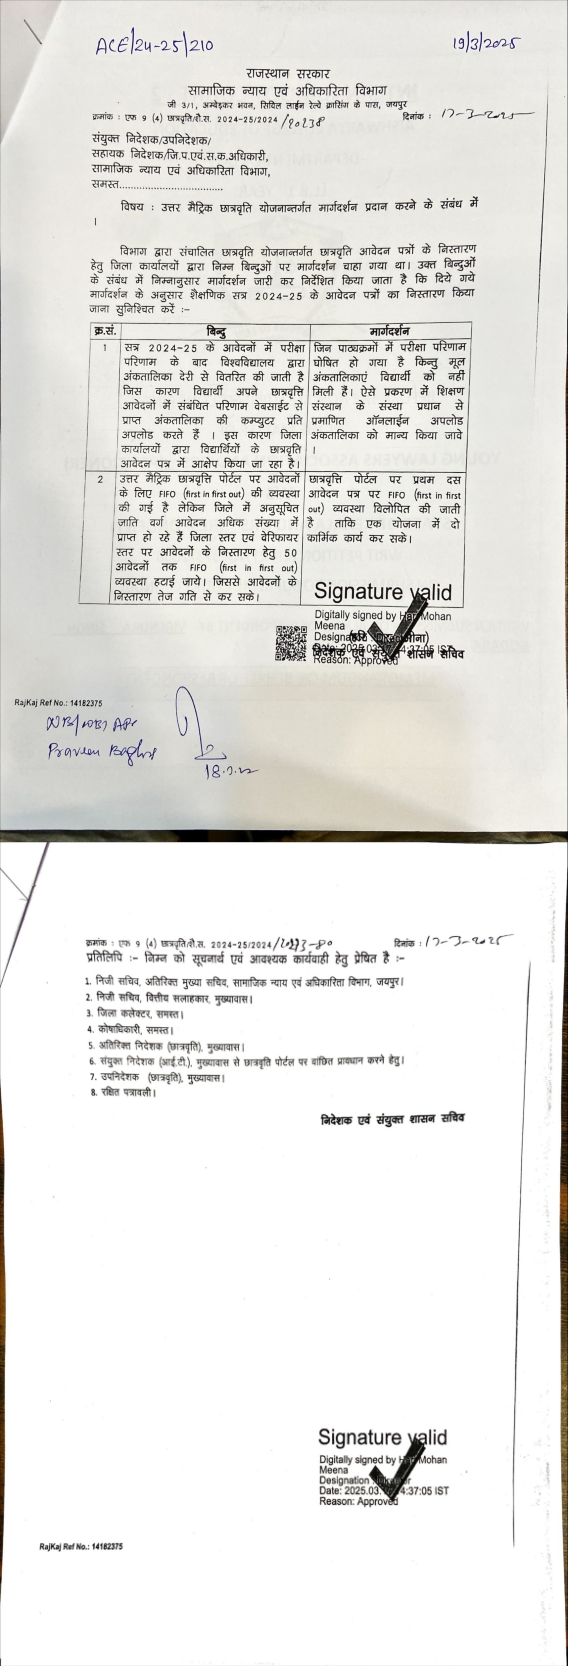 ACE/24-25/210
19/3/2025
राजस्थान सरकार
सामाजिक न्याय एवं अधिकारिता विभाग
जी 3/1, अम्बेडकर भवन, सिविल लाईन रेल्वे क्रासिंग के पास, जयपुर
क्रमांक : एफ 9 (4) छात्रवृति/शै.स. 2024-25/2024/70238 दिनांक : 17-3-2025
संयुक्त निदेशक/उपनिदेशक/
सहायक निदेशक/जि.प.एवं.स.क.अधिकारी,
सामाजिक न्याय एवं अधिकारिता विभाग,
समस्त..................................
विषय : उत्तर मैट्रिक छात्रवृति योजनान्तर्गत मार्गदर्शन प्रदान करने के संबंध में
।
विभाग द्वारा संचालित छात्रवृति योजनान्तर्गत छात्रवृति आवेदन पत्रों के निस्तारण
हेतु जिला कार्यालयों द्वारा निम्न बिन्दुओं पर मार्गदर्शन चाहा गया था। उक्त बिन्दुओं
के संबंध में निम्नानुसार मार्गदर्शन जारी कर निर्देशित किया जाता है कि दिये गये
मार्गदर्शन के अनुसार शैक्षणिक सत्र 2024-25 के आवेदन पत्रों का निस्तारण किया
जाना सुनिश्चित करें :–
क्र.सं. बिन्दु मार्गदर्शन
1 सत्र 2024-25 के आवेदनों में परीक्षा जिन पाठ्यक्रमों में परीक्षा परिणाम
परिणाम के बाद विश्वविद्यालय द्वारा घोषित हो गया है किन्तु मूल
अंकतालिका देरी से वितरित की जाती है अंकतालिकाएं विद्यार्थी को नहीं
जिस कारण विद्यार्थी अपने छात्रवृत्ति मिली हैं। ऐसे प्रकरण में शिक्षण
आवेदनों में संबंधित परिणाम वेबसाईट से संस्थान के संस्था प्रधान से
प्राप्त अंकतालिका की कम्प्युटर प्रति प्रमाणित ऑनलाईन अपलोड
अपलोड करते हैं । इस कारण जिला अंकतालिका को मान्य किया जावे
कार्यालयों द्वारा विद्यार्थियों के छात्रवृति ।
आवेदन पत्र में आक्षेप किया जा रहा है।
2 उत्तर मैट्रिक छात्रवृत्ति पोर्टल पर आवेदनों छात्रवृत्ति पोर्टल पर प्रथम दस
के लिए FIFO (first in first out) की व्यवस्था आवेदन पत्र पर FIFO (first in first
की गई है लेकिन जिले में अनुसूचित out) व्यवस्था विलोपित की जाती
जाति वर्ग आवेदन अधिक संख्या में है ताकि एक योजना में दो
प्राप्त हो रहे हैं जिला स्तर एवं वेरिफायर कार्मिक कार्य कर सके।
स्तर पर आवेदनों के निस्तारण हेतु 50
आवेदनों तक FIFO (first in first out)
व्यवस्था हटाई जाये। जिससे आवेदनों के
निस्तारण तेज गति से कर सके।
Signature valid
Digitally signed by Hari Mohan
Meena
निदेशक एवं संयुक्त शासन सचिव
Reason: Approved
RajKaj Ref No.: 14182375
Praveen
क्रमांक : एफ 9 (4) छात्रवृति/शै.स. 2024-25/2024/ दिनांक : 17-3-2025
प्रतिलिपि :– निम्न को सूचनार्थ एवं आवश्यक कार्यवाही हेतु प्रेषित है :–
1. निजी सचिव, अतिरिक्त मुख्य सचिव, सामाजिक न्याय एवं अधिकारिता विभाग, जयपुर।
2. निजी सचिव, वित्तीय सलाहकार, मुख्यावास।
3. जिला कलेक्टर, समस्त।
4. कोषाधिकारी, समस्त।
5. अतिरिक्त निदेशक (छात्रवृति), मुख्यावास।
6. संयुक्त निदेशक (आई.टी.), मुख्यावास से छात्रवृति पोर्टल पर वांछित प्रावधान करने हेतु।
7. उपनिदेशक (छात्रवृति), मुख्यावास।
8. रक्षित पत्रावली।
निदेशक एवं संयुक्त शासन सचिव
Signature valid
Digitally signed by Hari Mohan
Meena
Designation
Date: 2025.03. 4:37:05 IST
Reason: Approved
RajKaj Ref No.: 14182375